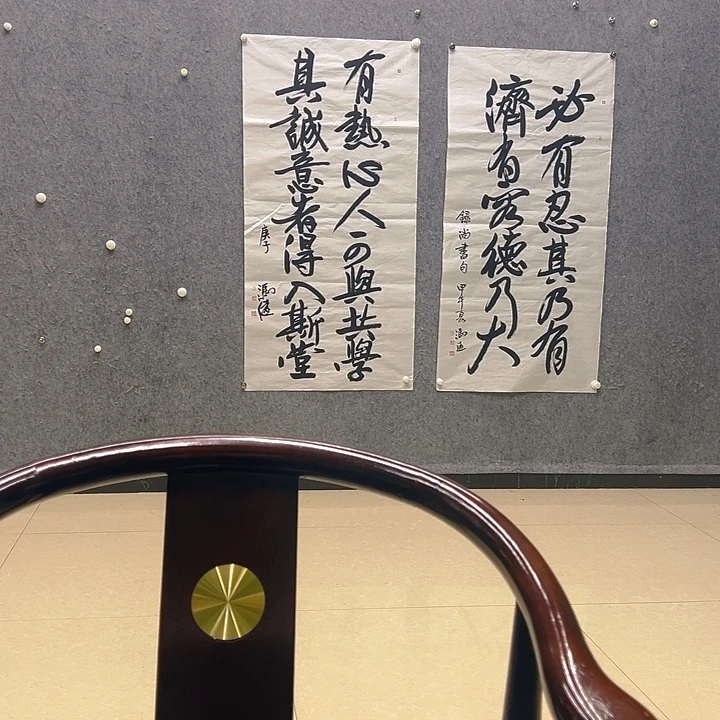 必有忍其乃有
濟有容德乃大
錄尚書句 甲午夏
有熱心人可與共學
具誠意者得入斯堂
庚子